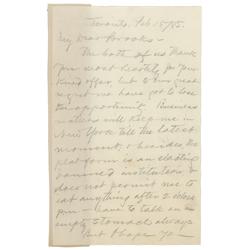 Toronto, Feb 15/85.
My Dear Brooks —
The both of us thank
you most heartily for your
kind offer, but to our great
regret we have got to lose
the opportunity. Business
matters will keep me in
New York till the latest
moment, & besides the
platform is an exacting
damned institution &
does not permit me to
eat anything after 2 when
you — have to talk on an
empty stomach always.
But I hope yo